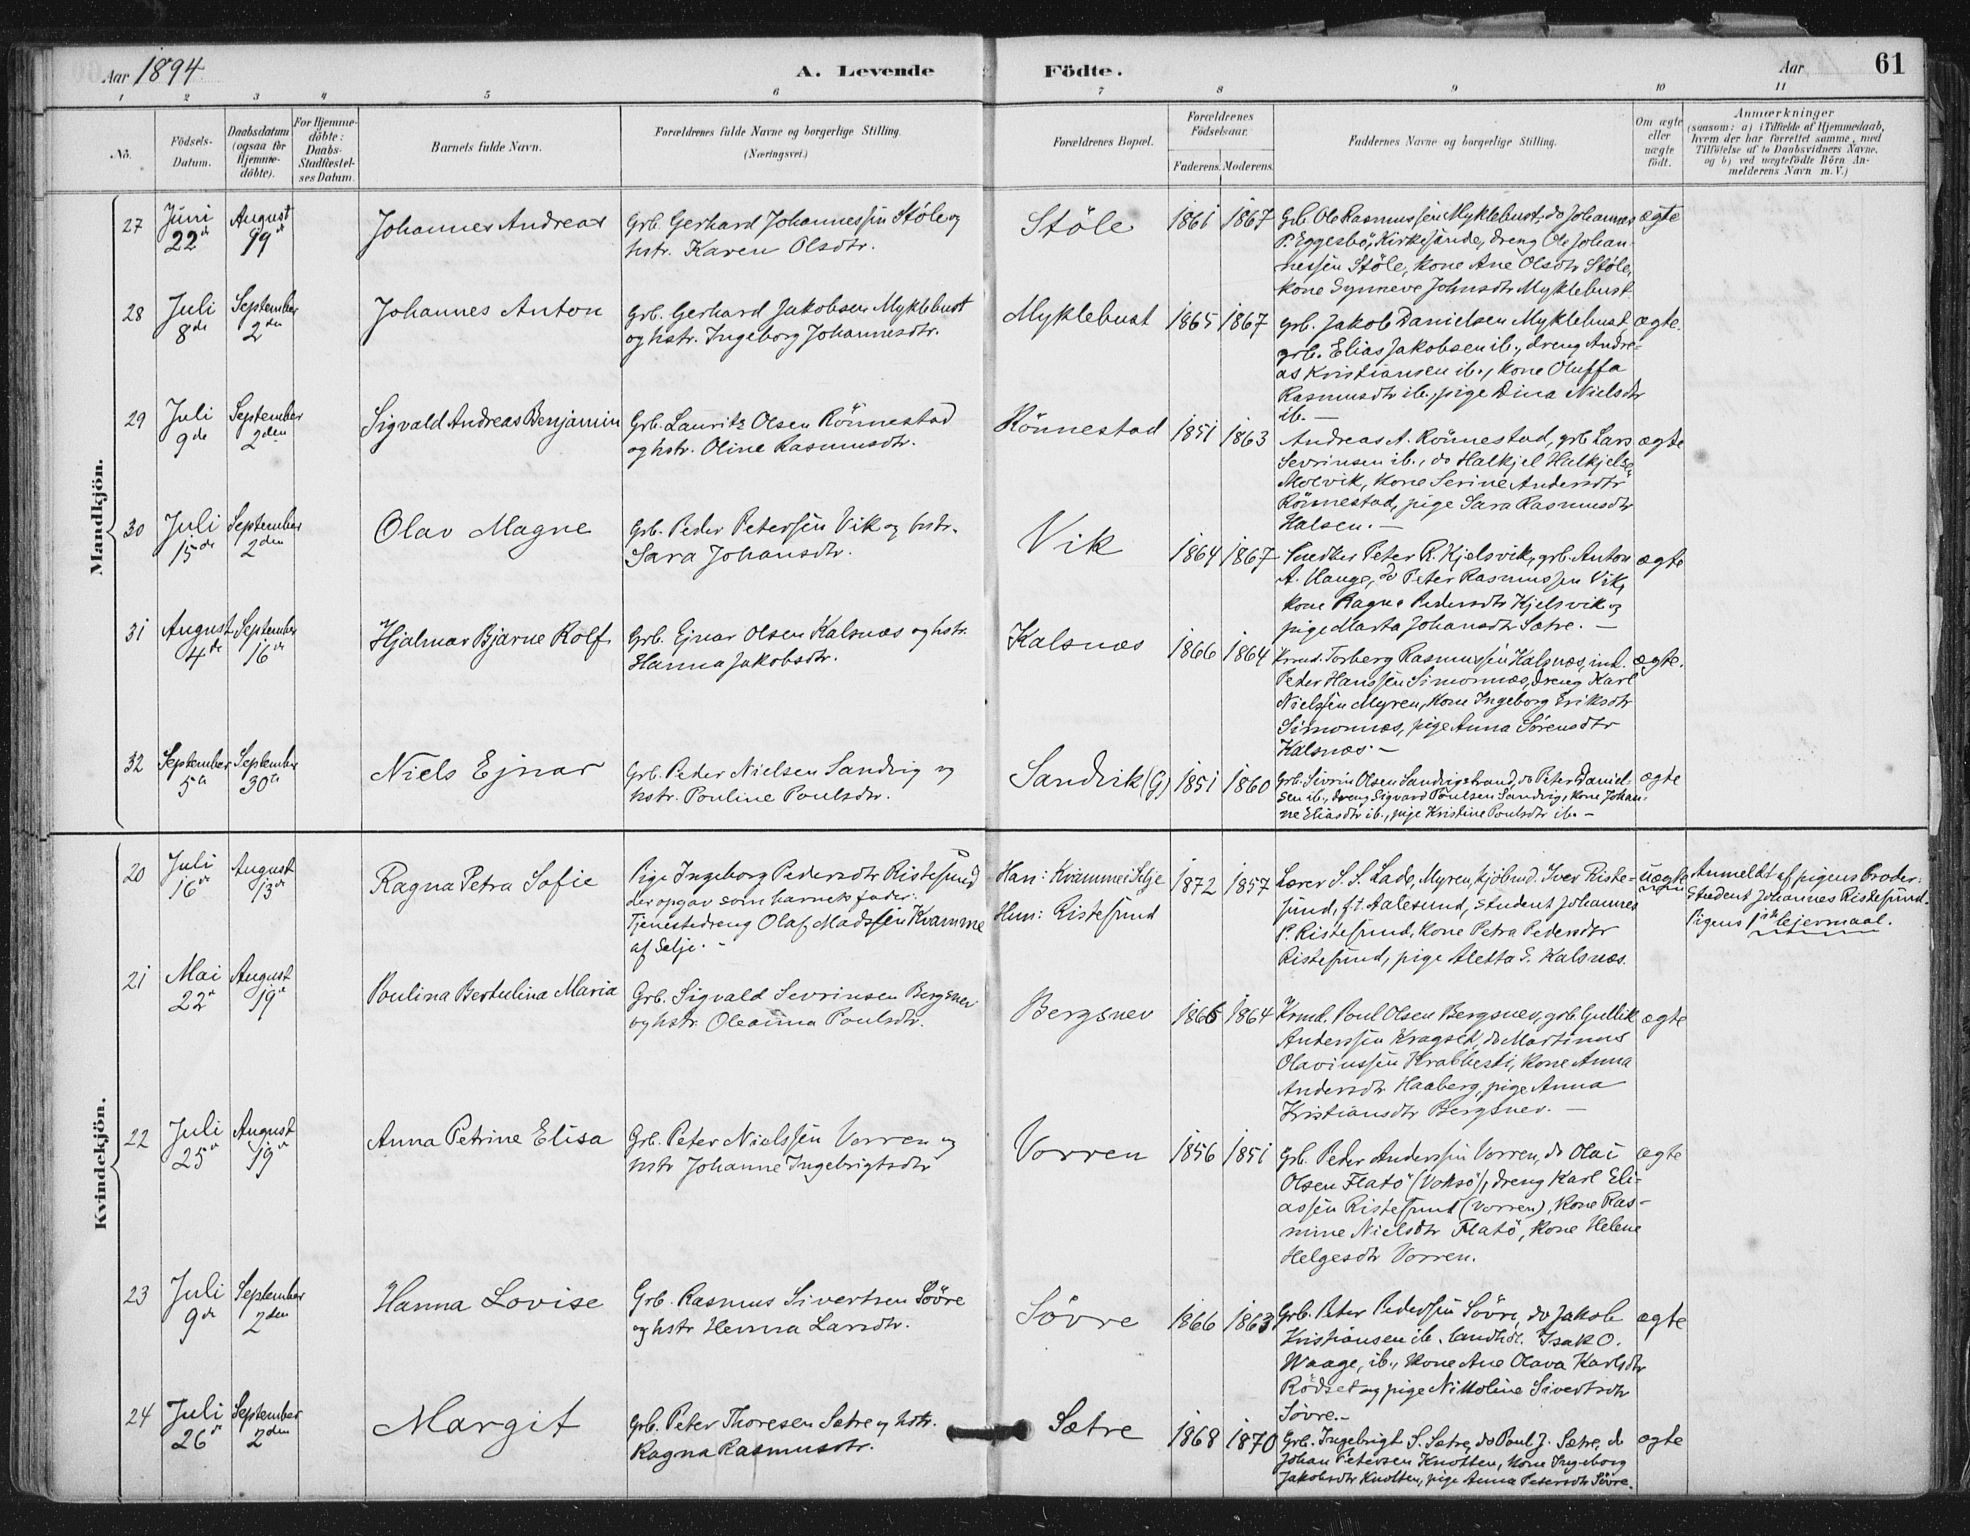 Aar 1894. A. Levende Födte. Aar 61
1 2 3 4 5 6 7 8 9 10 11
No. Födsels-Datum. Daabsdatum (ogsaa for Hjemmedöbte). For Hjemmedöbte: Daabs-Stadfæstelses Datum. Barnets fulde Navn. Forældrenes fulde Navne og borgerlige Stilling. (Næringsvei.) Forældrenes Bopæl. Forældrenes Födselsaar. Faderens. Moderens. Faddernes Navne og borgerlige Stilling. Om ægte eller uægte födt. Anmærkninger (saasom: a) i Tilfælde af Hjemmedaab, hvem der har forrettet samme, med Tilföielse af to Daabsvidners Navne, og b) ved uægtefödte Börn Anmelderens Navn m. V.)
Mandkjön.
27 Juni 22de August 19de Johannes Andreas Grb. Gerhard Johannessen Stöle og
hstr. Karen Olsdtr. Stöle 1861 1867 Grb. Ole Rasmussen Myklebust, do Johannes ægte
P. Eggesbö, Kirkesanger, dreng Ole Johan-
nessen Stöle, kone Ane Olsdtr Stöle,
kone Synneve Johnsdtr Myklebust
28 Juli 8de September 2den Johannes Anton Grb. Gerhard Jakobsen Myklebust
og hstr. Ingeborg Johannesdtr. Myklebust 1865 1867 grb. Jakob Danielsen Myklebust, ægte.
grb. Elias Jakobsen ib., dreng Andre-
as Kristiansen ib., kone Oluffa
Rasmusdtr ib., pige Dina Nielsdtr
ib. —
29 Juli 9de September 2den Sigvald Andreas Benjamin Grb. Lauritz Olsen Rönnestad
og hstr. Oline Rasmusdtr. Rönnestad 1851 1863 Andreas A. Rönnestad, grb Lars ægte
Sevrinsen ib., do Halkjel Halkjels.
Molvik, kone Serine Andersdtr
Rönnestad, pige Sara Rasmusdtr
Halsen. —
30 Juli 15de September 2den Olav Magne Grb. Peder Petersen Vik og hstr.
Sara Johansdtr. Vik 1864 1867 Snedker Peter R. Kjelsvik, grb. Anton ægte
A. Hauge, do Peter Rasmussen Vik,
kone Ragna Pedersdtr Kjelsvik og
pige Marta Johansdtr Sætre. —
31 August 4de September 16de Hjalmar Bjarne Rolf Grb. Ejnar Olsen Kalsnæs og hstr.
Hanna Jakobsdtr. Kalsnæs 1866 1864 Krmd. Torberg Rasmussen Kalsnæs, ind. ægte.
Peder Hanssen Simonnæs, dreng Karl
Nielssen Myren, kone Ingeborg Eriksdtr
Simonnæs, pige Anna Sörensdtr
Kalsnæs. —
32 September 5te September 30te Niels Ejnar Grb. Peder Nielsen Sandvig og
hstr. Pouline Poulsdtr. Sandvik (G) 1851 1860 Grb. Sivrin Olsen Sandvigstrand, do Peter Daniel- ægte
sen ib., dreng Sigvard Poulsen Sandvig, kone Johan-
ne Eliasdtr ib., pige Kristine Poulsdtr ib. —
Kvindekjön.
20 Juli 16de August 13de Ragna Petra Sofie Pige Ingeborg Pedersdtr Ristesund
der opgav som barnets fader:
Tjenestedreng Olaf Madssen Kvamme
af Selje. - Han: Kvamme i Selje
Hun: Ristesund 1872 1857 Lærer S. S. Lade, Myren, kjöbmd. Iver Riste- uægte
sund, f. t. Aalesund, student Johannes
P. Ristesund, kone Petra Pedersdtr
Ristesund, pige Aletta E. Kalsnæs. Anmeldt af pigens broder:
Student Johannes Ristesund.
Pigens 1ste leiermaal.
21 Mai 22de August 19de Poulina Bertulina Maria Grb. Sigvald Sevrinsen Bergsnev
og hstr. Oleanna Poulsdtr. Bergsnev 1866 1864 Krmd. Poul Olsen Bergsnev, grb. Gullik ægte
Anderssen Kragset, do Martinus
Olavinssen Krabbesti, kone Anna
Andersdtr Haaberg, pige Anna
Kristiansdtr Bergsnev. —
22 Juli 25de August 19de Anna Petrine Elisa Grb. Peter Nielssen Vorren og
hstr Johanne Ingebrigtsdtr Vorren 1856 1851 Grb. Peder Anderssen Vorren, do Olai ægte
Olsen Flatö (Voksö), dreng Karl Eli-
assen Ristesund (Vorren), kone Ras-
mine Nielsdtr Flatö, kone Helene
Helgesdtr Vorren.
23 Juli 9de September 2den Hanna Lovise Grb. Rasmus Sivertsen Sövre
og hstr Henna Larsdtr. Sövre 1866 1863 Grb. Peter Pedersen Sövre, do Jakob ægte
Kristiansen ib. landhdl. Isak O.
Waage, ib., kone Ane Olava Karlsdtr
Rödset og pige Nikoline Sivertsdtr
Sövre. —
24 Juli 26de September 2den Margit Grb. Peter Thoresen Sætre og hstr.
Ragna Rasmusdtr. Sætre 1868 1870 Grb. Ingebrigt S. Sætre, do Poul J. Sætre, do ægte
Johan Petersen Knotten, kone Ingeborg
Jakobsdtr Knotten, pige Anna Petersdtr Sövre.